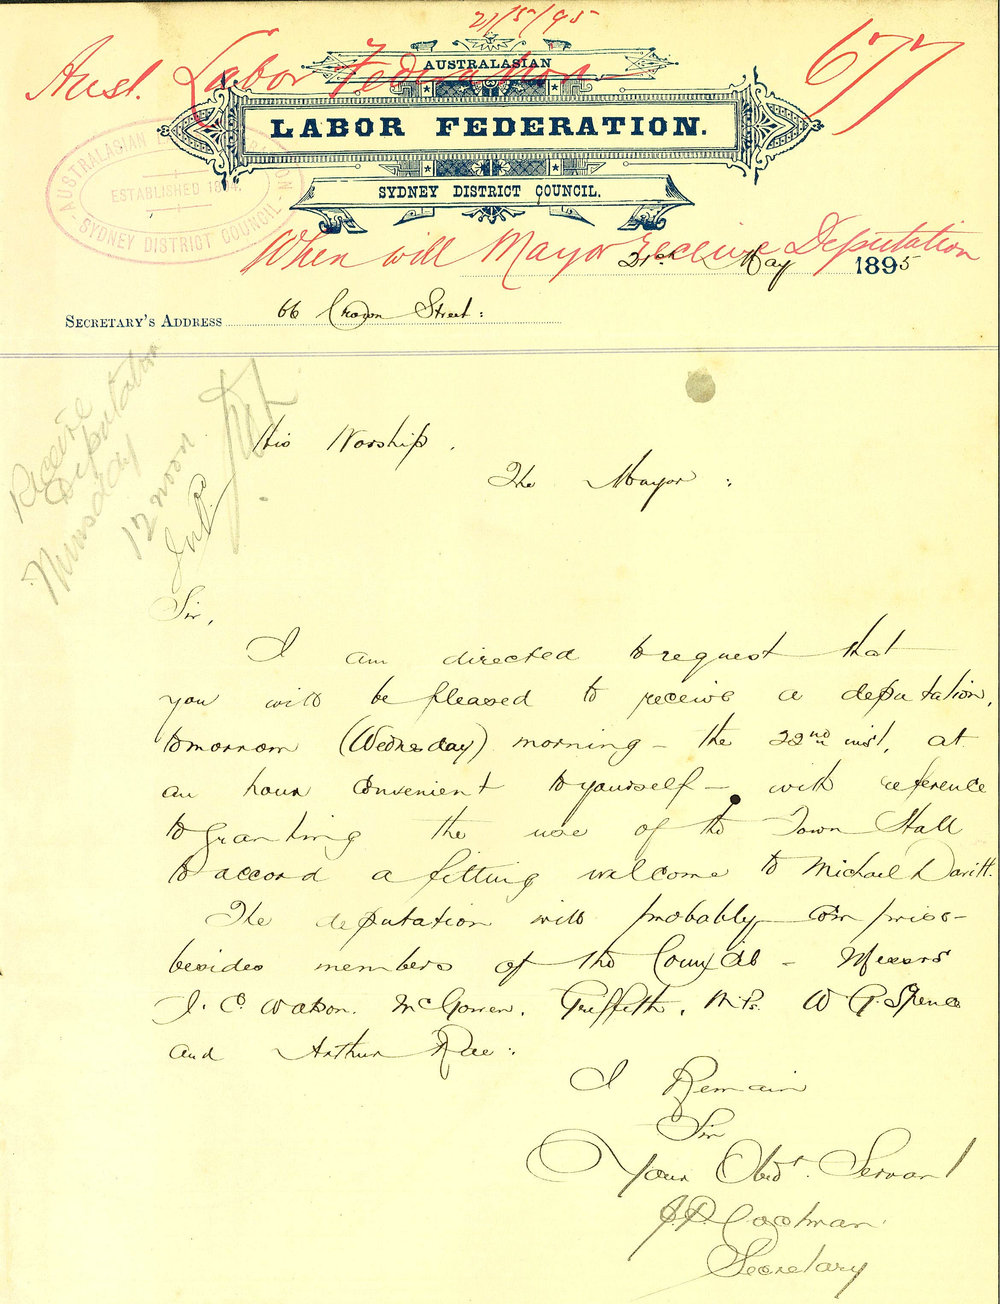 21/5/95
Aust. Labor Federation
677
AUSTRALASIAN
LABOR FEDERATION.
SYDNEY DISTRICT COUNCIL.
AUSTRALASIAN LABOR FEDERATION
ESTABLISHED 1894.
SYDNEY DISTRICT COUNCIL
When will Mayor receive Deputation
21st May 1895
SECRETARY'S ADDRESS 66 Crown Street:
Receive
Deputation
Thursday
12 noon
His Worship.
The Mayor:
Sir,
I am directed to request that
you will be pleased to receive a deputation,
tomorrow (Wednesday) morning - the 22nd inst, at
an hour convenient to yourself - with reference
to granting the use of the Town Hall
to accord a fitting welcome to Michael Davitt.
The deputation will probably comprise -
besides members of the Council - Messrs
J. C. Watson. McGowen. Griffith, M.Ps. W G. Spence
and Arthur Rae:
I Remain
Sir
Your Obedt. Servant
Cochran
Secretary